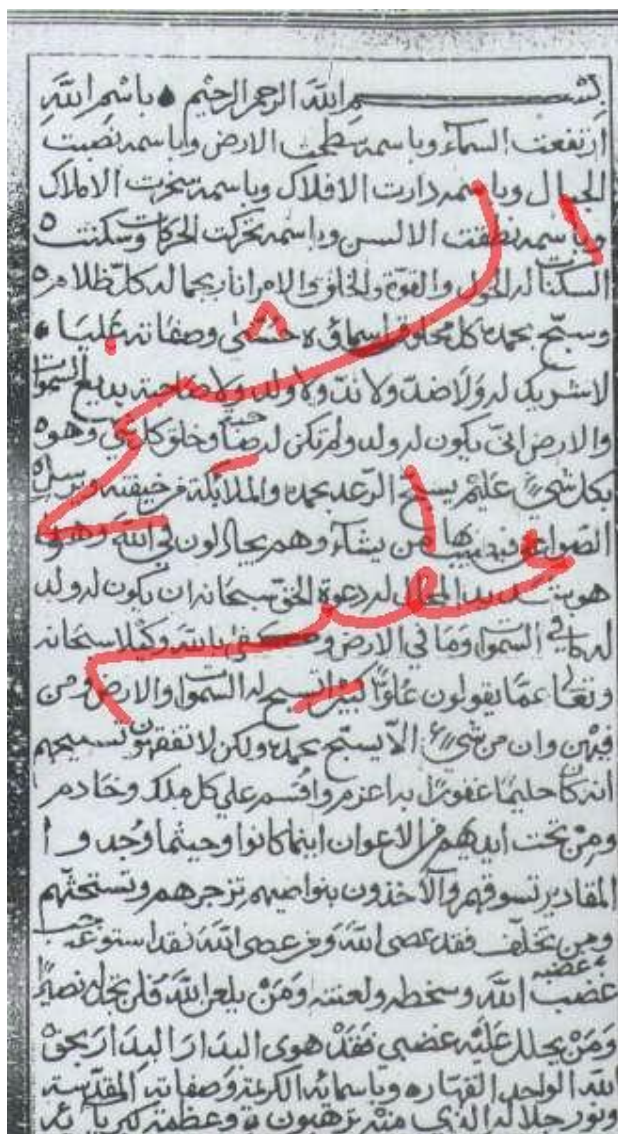 بسم الله الرحمن الرحيم • باسم الله
ارتفعت السماء وباسمه سطحت الارض وباسمه نصبت
الجبال وباسمه دارت الافلاك وباسمه سخرت الاملاك
وباسمه نطقت الالسن وباسمه تحركت الحركات وسكنت
السكنات له الحول والقوة والخلق والامر انار بجماله كل ظلام
وسبح بحمده كل مخلوق اسماؤه حسنى وصفاته عليا •
لا شريك له ولا ضد ولا ند ولا ولد ولا صاحبة بديع السموات
والارض انى يكون له ولد ولم تكن له صاحبة وخلق كل شئ وهو
بكل شئ عليم يسبح الرعد بحمده والملائكة من خيفته ويرسل
الصواعق فيصيب بها من يشاء وهم يجادلون في الله وهو
هو شديد المحال له دعوة الحق سبحانه ان يكون له ولد
له ما في السموات وما في الارض وكفى بالله وكيلا سبحانه
وتعالى عما يقولون علوا كبيرا تسبح له السموات والارض ومن
فيهن وان من شئ الا يسبح بحمده ولكن لا تفقهون تسبيحهم
انه كان حليما غفورا اعزم واقسم علي كل ملك وخادم
ومن تحت ايديهم من الاعوان اينما كانوا وحيثما وجدوا
المقادير تسوقهم والآخذون بنواصيهم تزجرهم وتستحثهم
ومن تخلف فقد عصى الله ومن عصى الله فقد استوجب
غضب الله وسخطه ولعنته ومن يلعن الله فلن تجد له نصيرا
ومن يحلل عليه غضبي فقد هوى البدار البدار بحق
الله الواحد القهار وباسمائه الكريمة وصفاته المقدسة
ونور جلاله الذي منه ترهبون وعظمة كبريائه